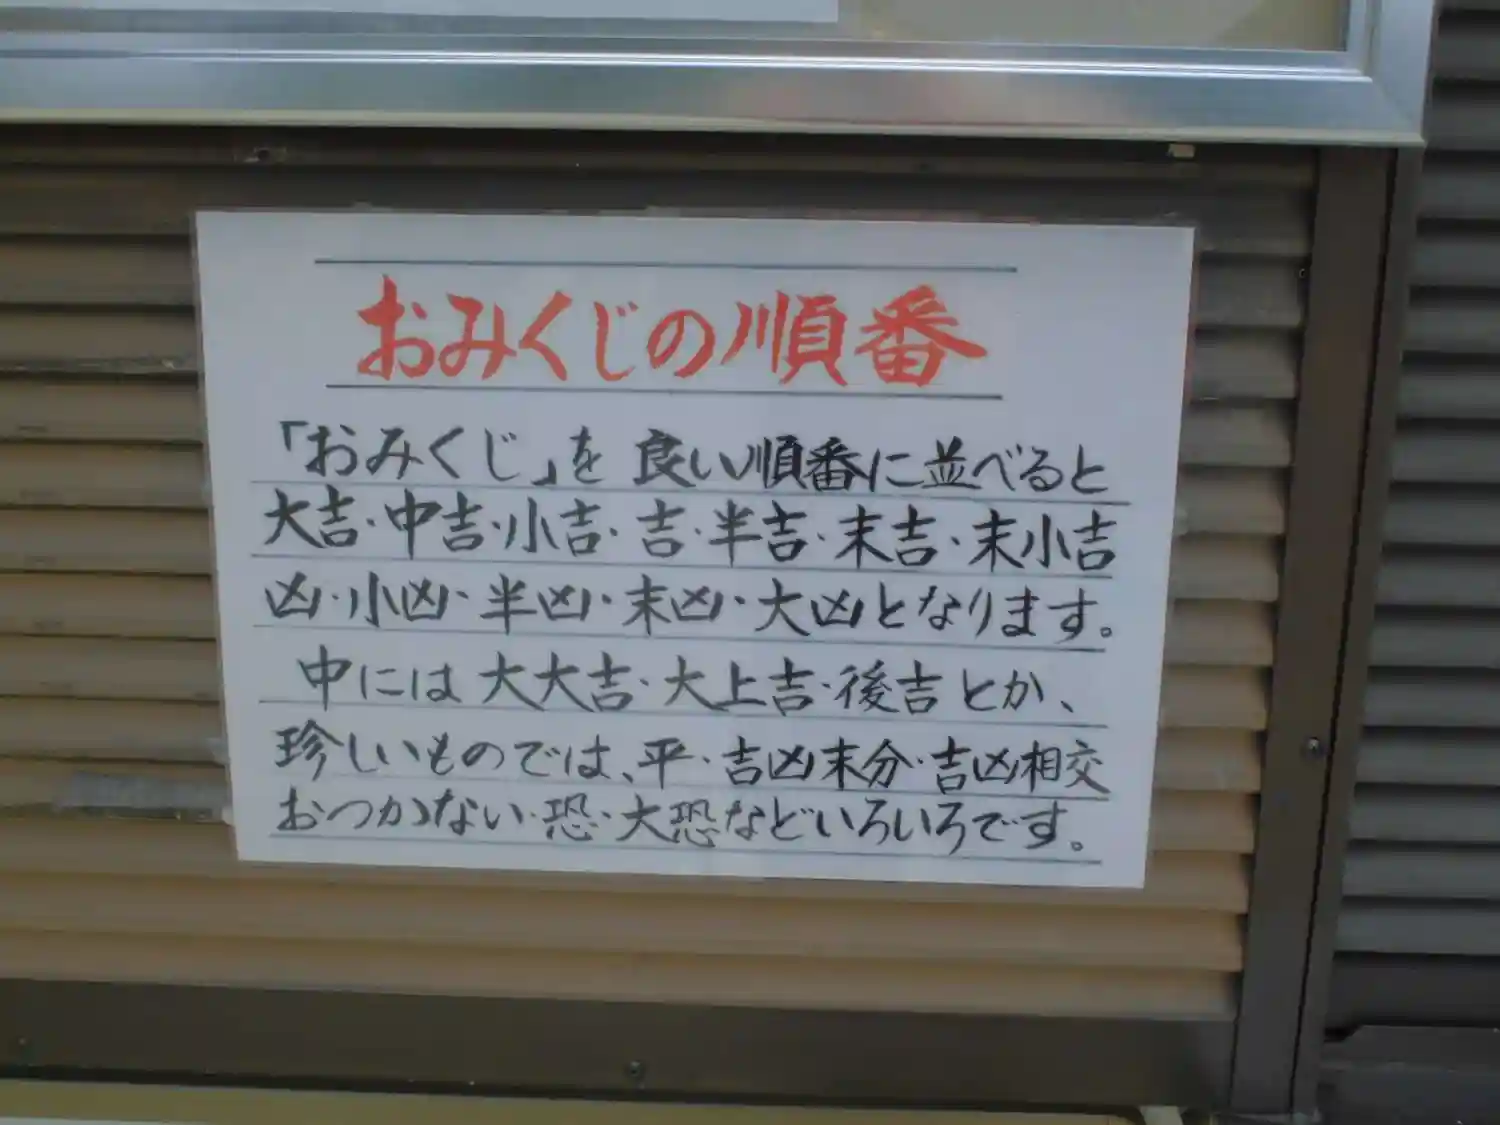 おみくじの順番
「おみくじ」を良い順番に並べると
大吉・中吉・小吉・吉・半吉・末吉・末小吉
凶・小凶・半凶・末凶・大凶となります。
中には大大吉・大上吉・後吉とか、
珍しいものでは、平・吉凶末分・吉凶相交
おつかない・恐・大恐などいろいろです。